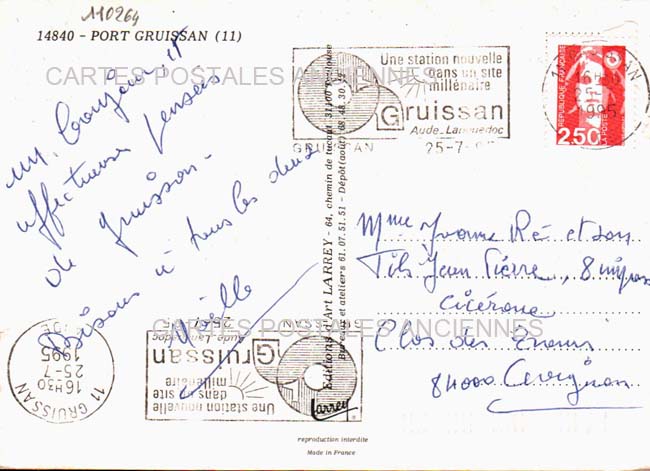 110264
14840 - PORT GRUISSAN (11)
CARTES POSTALES ANCIENNES
un bonjour et
affectueuses pensées
de Gruissan.
Bisous à tous les deux
Noëlle
Éditions d'Art LARREY - 64, chemin de tucaut, 31100 Toulouse
Bureaux et ateliers 61.07.51.51 - Dépôt (août) 68.48.30.
Une station nouvelle
dans un site
millénaire
Gruissan
Aude-Languedoc
GRUISSAN
25-7-
16H30
25-7
1995
REPUBLIQUE FRANÇAISE
2,50
LA POSTE
Mme Yvonne Ré et son
Fils Jean Pierre, 8 impas
Cicérone
Clos des
84000 Avignon
CARTES POSTALES ANCIENNES
16H30
25-7-
1995
11 GRUISSAN
Une station nouvelle
dans un site
millénaire
Gruissan
Aude-Languedoc
Larrey
reproduction interdite
Made in France